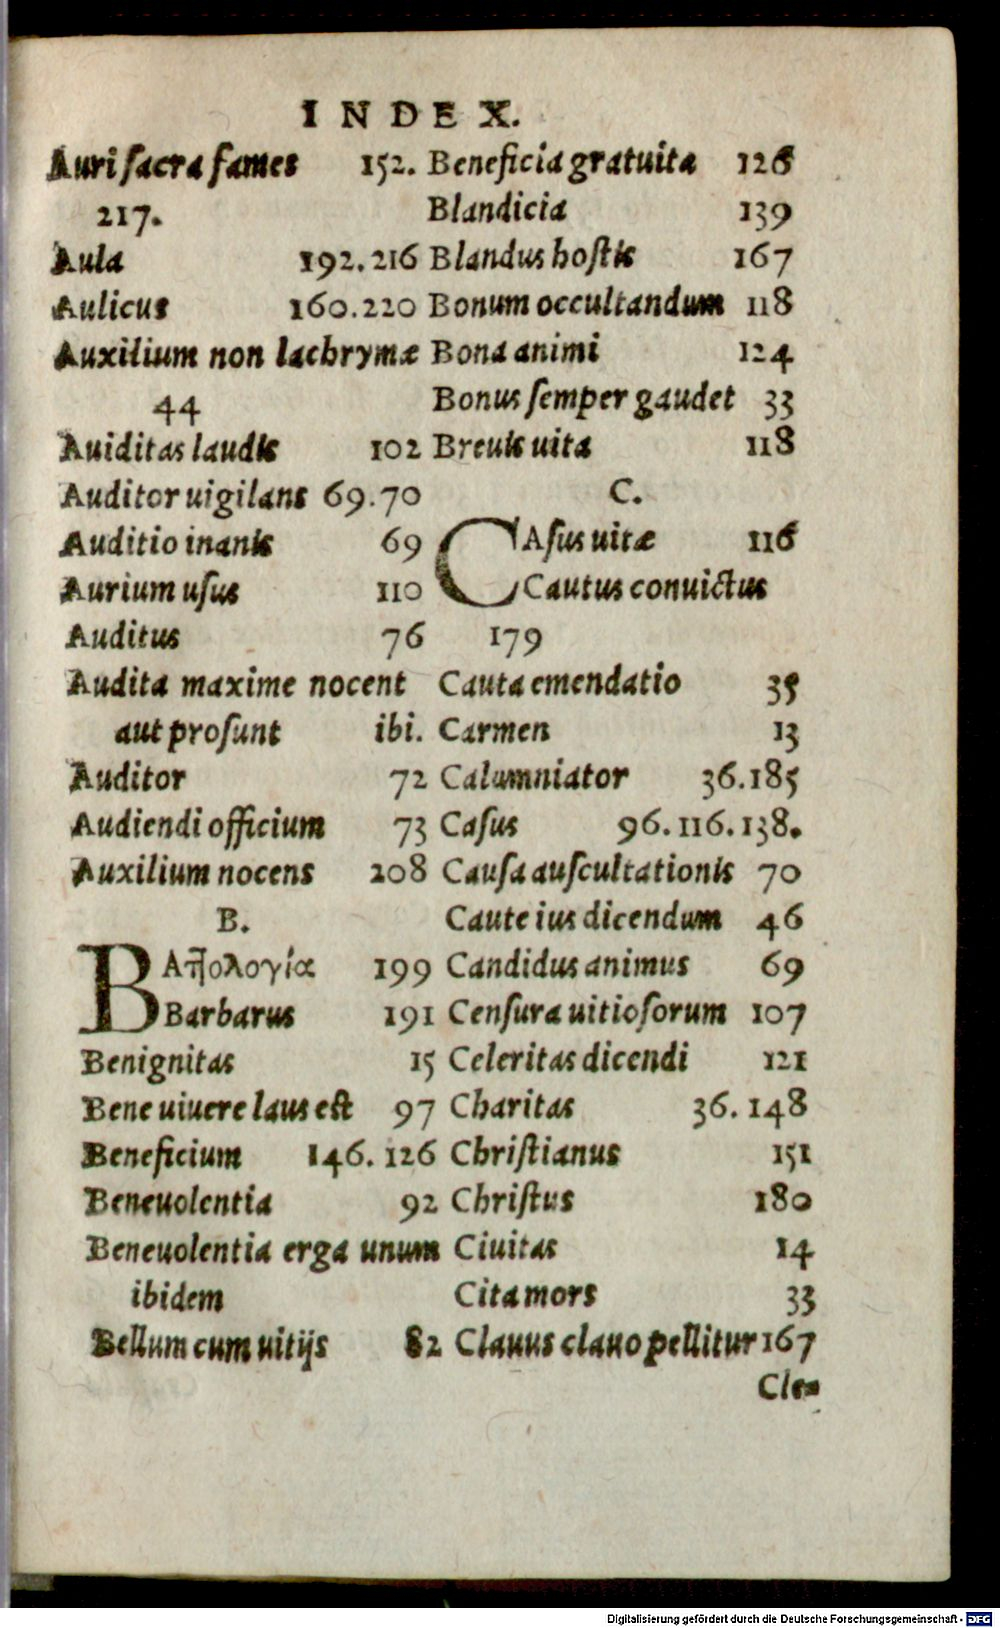 INDEX.
Auri ſacra fames 152.
217.
Aula 192.216
Aulicus 160.220
Auxilium non lachrymæ
44
Auiditas laudis 102
Auditor uigilans 69.70
Auditio inanis 69
Aurium uſus 110
Auditus 76
Audita maxime nocent
aut proſunt ibi.
Auditor 72
Audiendi officium 73
Auxilium nocens 208
B.
BΑπολογία 199
Barbarus 191
Benignitas 15
Bene uiuere laus est 97
Beneficium 146.126
Beneuolentia 92
Beneuolentia erga unum
ibidem
Bellum cum uitijs 82
Beneficia gratuita 126
Blandicia 139
Blandus hoſtis 167
Bonum occultandum 118
Bona animi 124
Bonus ſemper gaudet 33
Breuis uita 118
C.
CAſus uitæ 116
Cautus convictus
179
Cauta emendatio 35
Carmen 13
Calumniator 36.185
Caſus 96.116.138.
Cauſa auſcultationis 70
Caute ius dicendum 46
Candidus animus 69
Cenſura uitioſorum 107
Celeritas dicendi 121
Charitas 36.148
Chriſtianus 151
Chriſtus 180
Ciuitas 14
Cita mors 33
Clauus clauo pellitur 167
Cle-
Digitalisierung gefördert durch die Deutsche Forschungsgemeinschaft - DFG